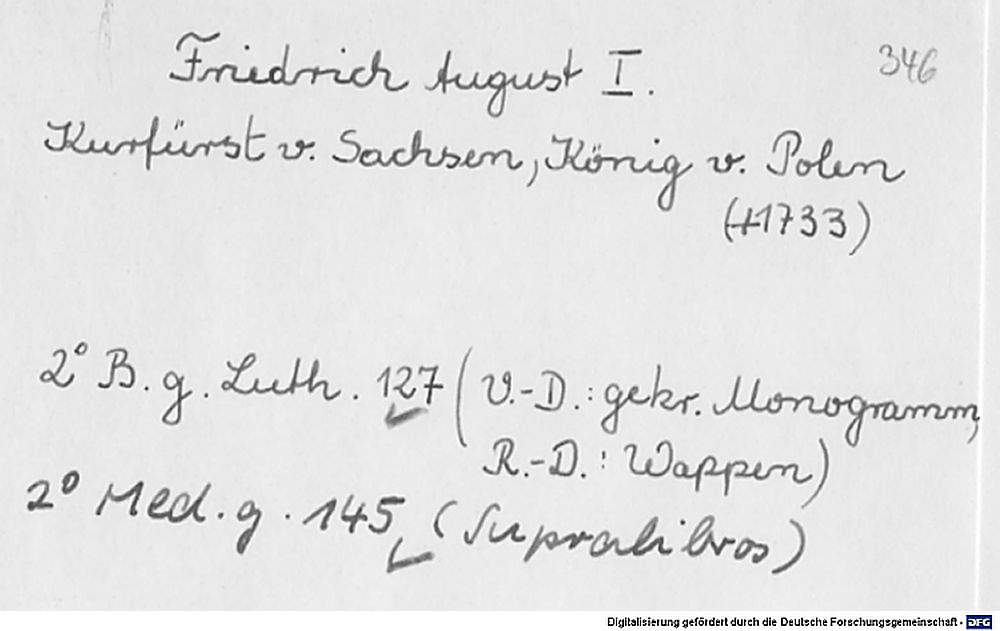 346
Friedrich August I.
Kurfürst v. Sachsen, König v. Polen
(+1733)
2° B. g. Luth. 127 (V.-D.: gekr. Monogramm,
R.-D.: Wappen)
2° Med. g. 145 (Supralibros)
Digitalisierung gefördert durch die Deutsche Forschungsgemeinschaft - DFG